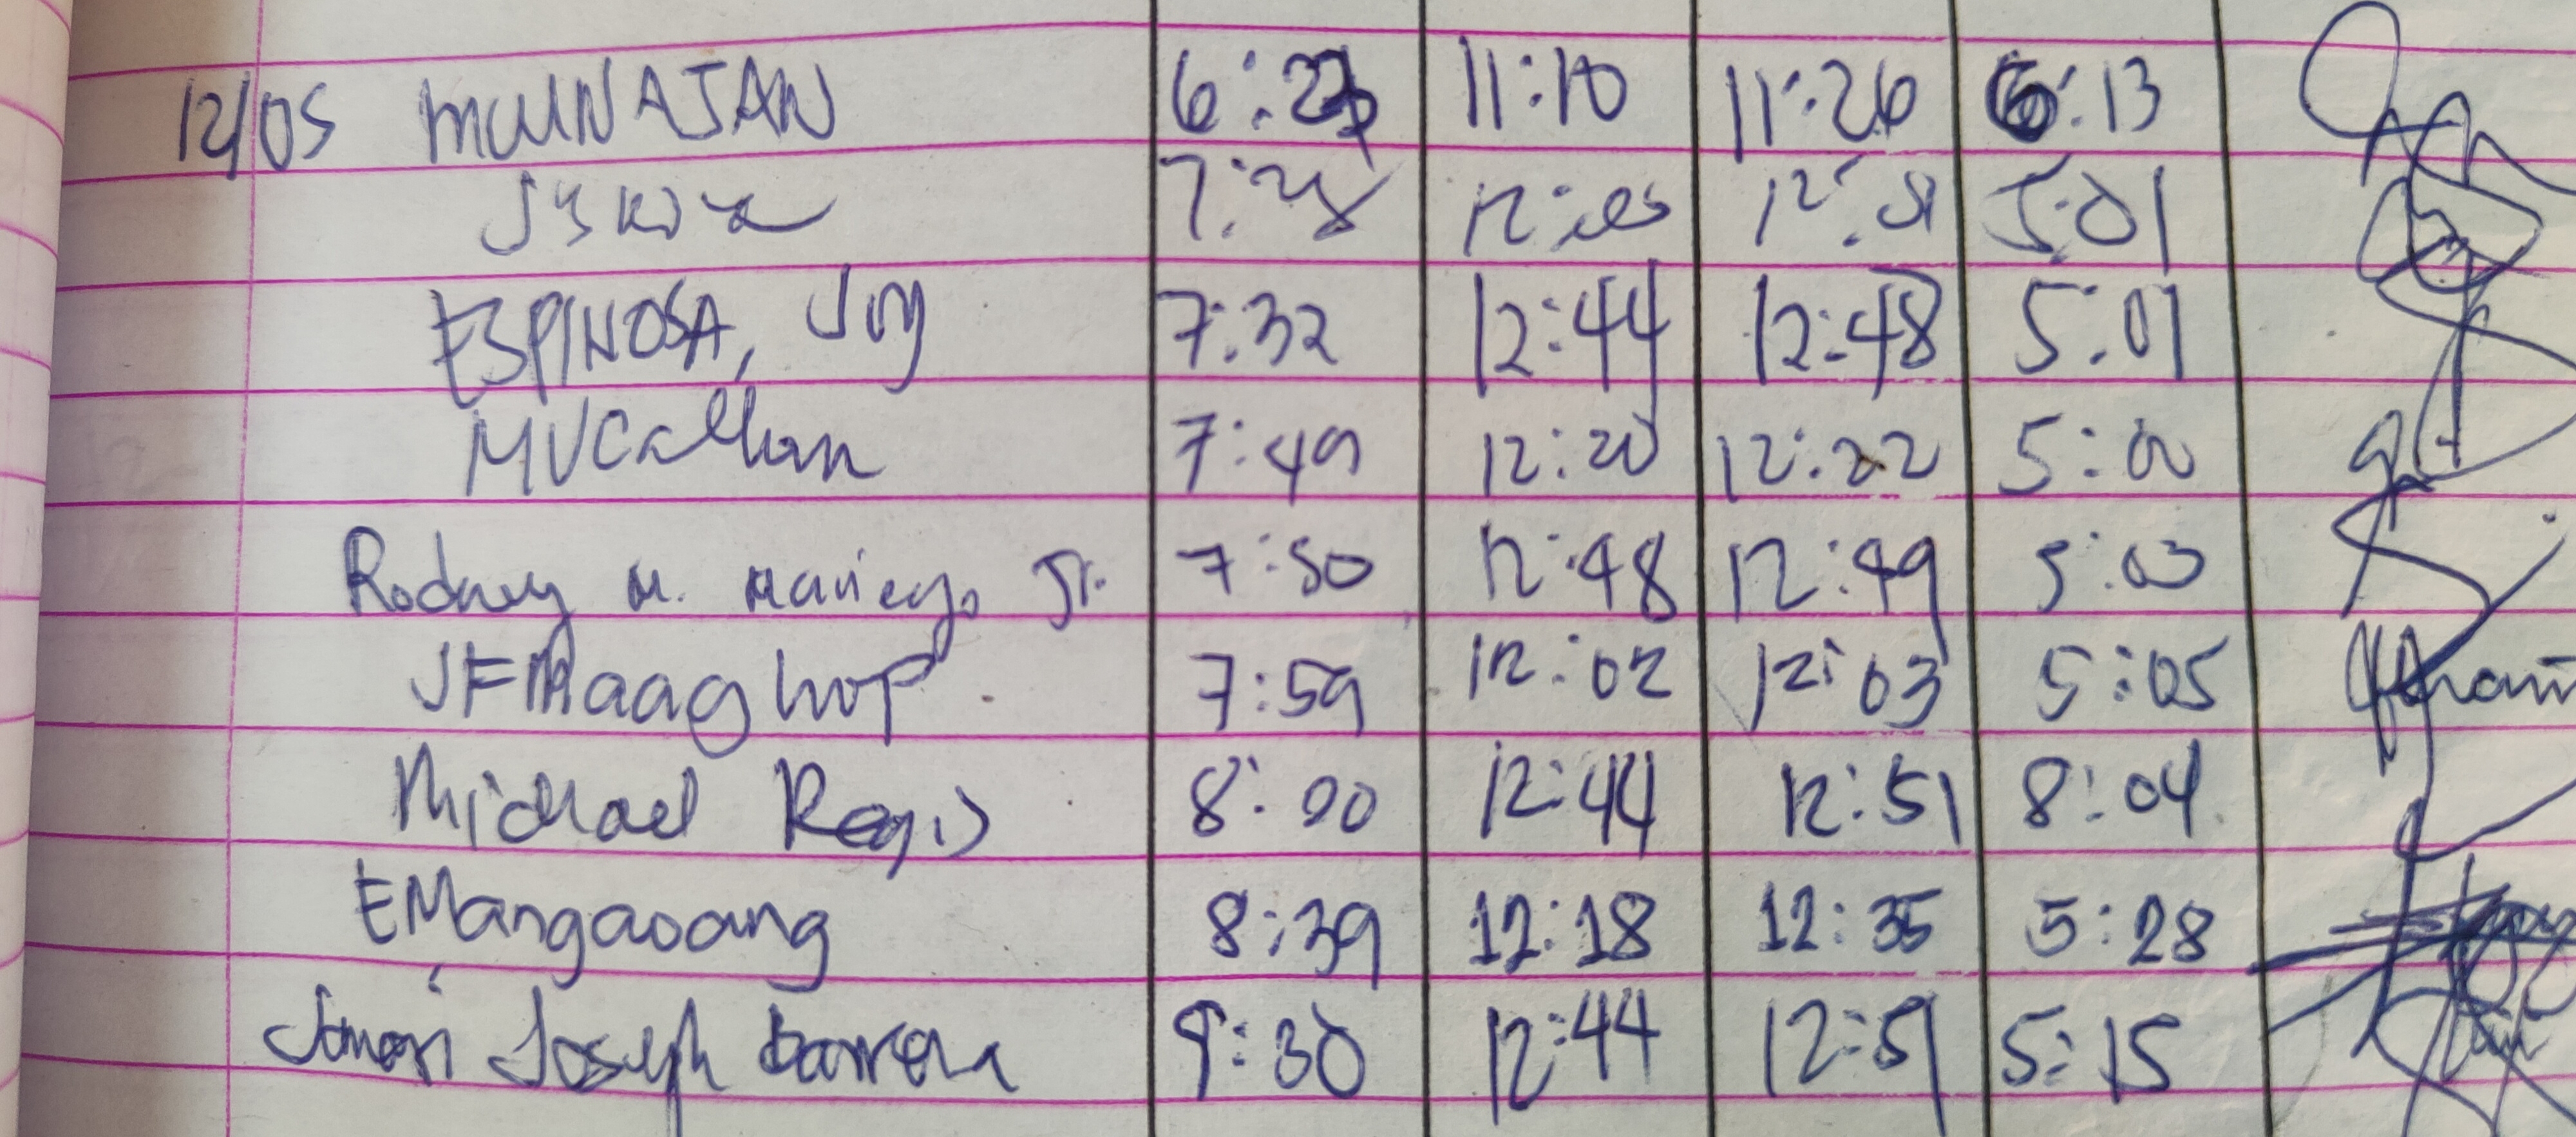 12/05 MUNAJAN 11:10 11:26 6:13
7:28 5:01
ESPINOSA, Joy 7:32 12:44 12:48 5:01
7:49 12:20 12:22 5:00
Rodney M. Jr. 7:50 12:48 12:49 5:03
JFMaaghop 7:59 12:02 12:03 5:05
Michael Regis 8:00 12:44 12:51 8:04
EMangaoang 8:39 12:18 12:35 5:28
Joseph 9:30 12:44 12:51 5:15